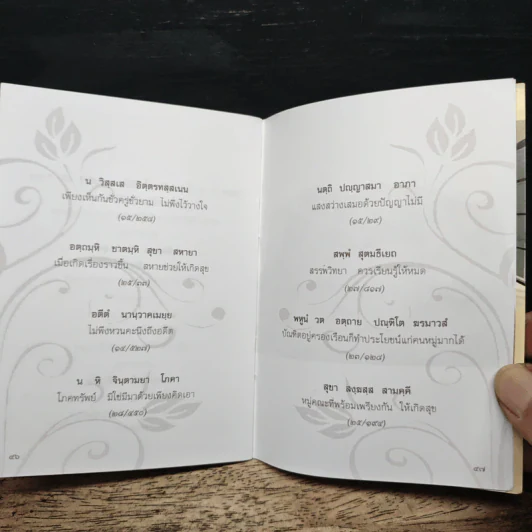 น วิสฺสเส อิตฺตรทสฺสเนน
เพียงเห็นกันชั่วครู่ชั่วยาม ไม่พึงไว้วางใจ
อตฺถมฺหิ ชาตมฺหิ สุขา สหายา
เมื่อเกิดเรื่องราวขึ้น สหายช่วยให้เกิดสุข
(๒๕/๓๓)
อตีตํ นานฺวาคเมยฺย
ไม่พึงหวนคะนึงถึงอดีต
(๑๔/๕๒๗)
น หิ จินฺตามยา โภคา
โภคทรัพย์ มิใช่มีมาด้วยเพียงคิดเอา
(๒๘/๔๕๐)
๔๖
นตฺถิ ปญฺญาสมา อาภา
แสงสว่างเสมอด้วยปัญญาไม่มี
(๑๕/๒๙)
สพฺพํ สุตมธีเยถ
สรรพวิทยา ควรเรียนรู้ให้หมด
(๒๗/๘๑๗)
พหูนํ วต อตฺถาย ปณฺฑิโต ฆรมาวสํ
บัณฑิตอยู่ครองเรือนก็ทำประโยชน์แก่คนหมู่มากได้
(๒๓/๑๒๘)
สุขา สงฺฆสฺส สามคฺคี
หมู่คณะที่พร้อมเพรียงกัน ให้เกิดสุข
(๒๕/๑๙๔)
๔๗